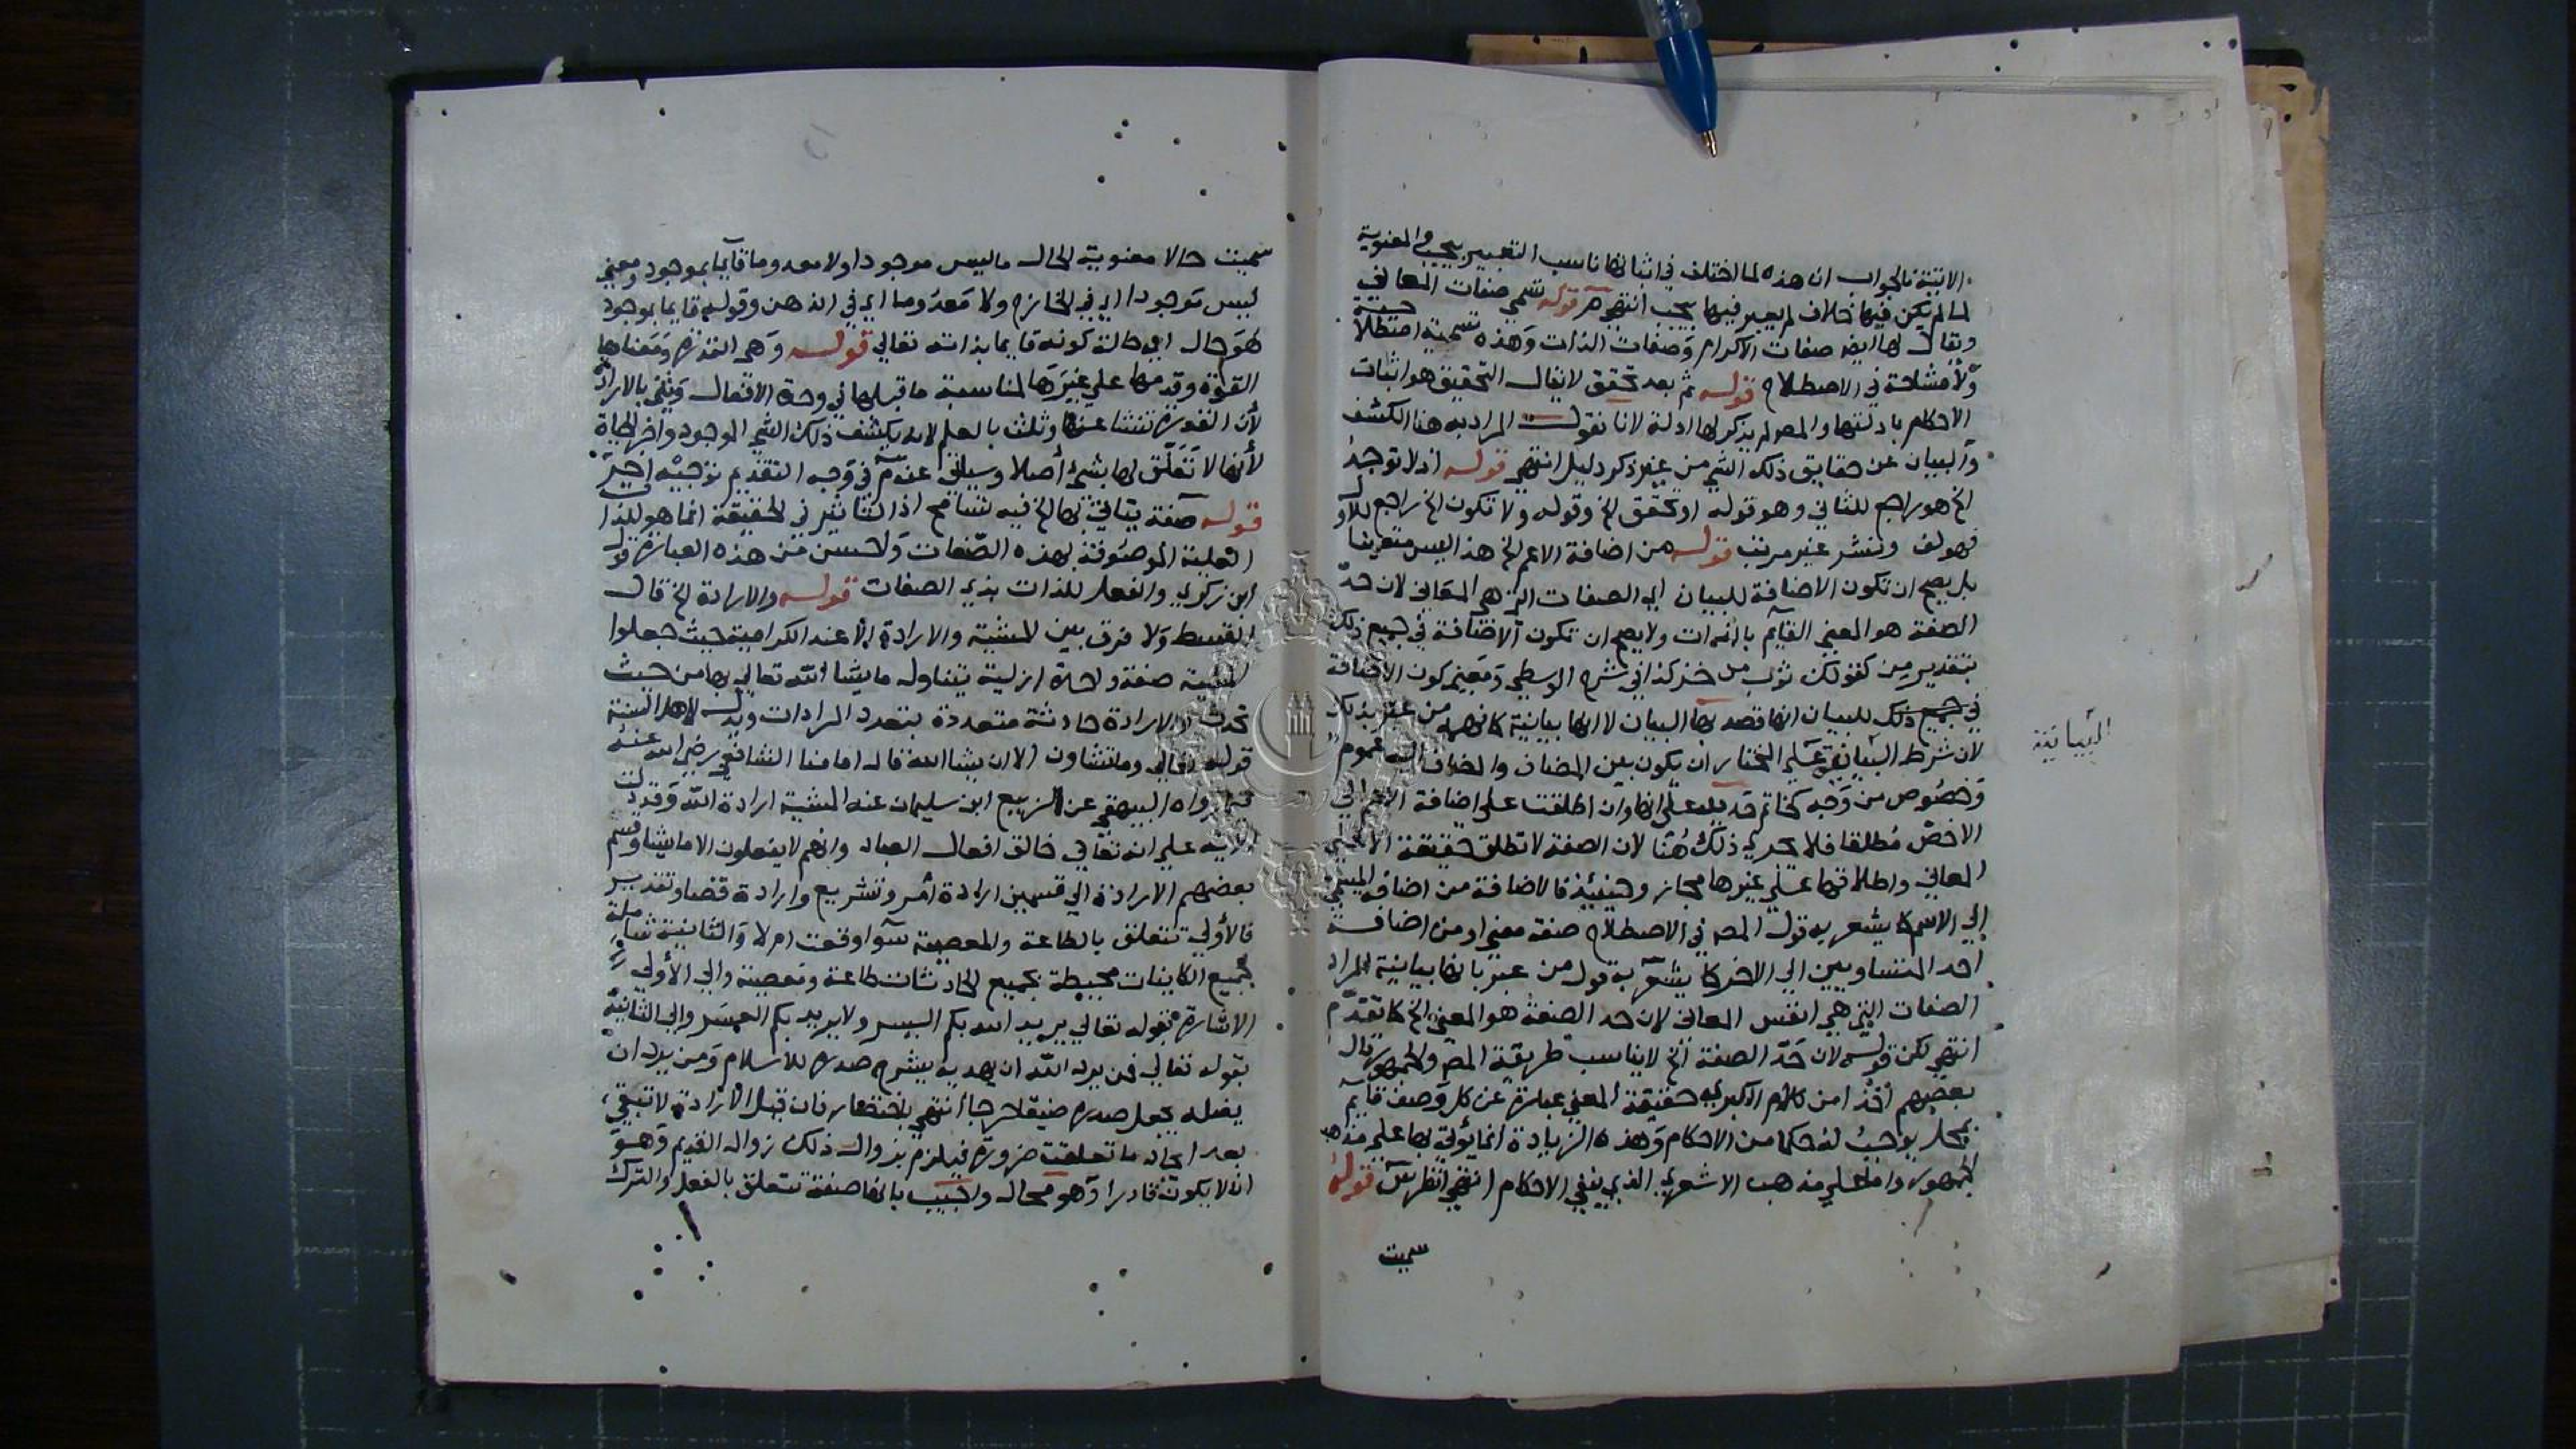 الاتية فالجواب ان هذه لما اختلف في اثباتها ناسب التعبير بيجب في المعنوية
لما لم يكن فيها خلاف لم يعبر فيها بيجب انتهى قوله تسمى صفات المعاني
ويقال لها ايضا صفات الاكرام وصفات الذات وهذه تسمية اصطلاحية
ولا مشاحة في الاصطلاح قوله ثم بعد تحقق لا يقال التحقيق هو اثبات
الاحكام بادلتها والمص لم يذكر لها ادلة لانا نقول المراد به هنا الكشف
والبيان عن حقايق ذلك الشي من غير ذكر دليل انتهى قوله اذ لا توجد
الخ هو راجع للثاني وهو قوله او تحقق الخ وقوله ولا تكون الخ راجع للاول
فهو لف ونشر غير مرتب قوله من اضافة الاعم الخ هذا ليس متعينا
بل يصح ان تكون الاضافة للبيان اي الصفات التي هي المعاني لان حد
الصفة هو المعنى القايم بالذات ولا يصح ان تكون الاضافة في جميع ذلك
بتقدير من كقولك ثوب من خز كذا في شرح الوسطى ومعنى كون الاضافة
في جميع ذلك للبيان انها قصد بها البيان لا انها بيانية كما فهمه من عبر بذلك
لان شرط البيانية على المختار ان يكون بين المضاف والمضاف اليه عموم
البيانية
وخصوص من وجه كخاتم حديد على انها وان اطلقت على اضافة الاعم الى
الاخص مطلقا فلا يجري ذلك هنا لان الصفة لا تطلق حقيقة الا على
المعاني واطلاقها على غيرها مجاز وحينئذ فالاضافة من اضافة المسمى
الى الاسم كما يشعر به قول المص في الاصطلاح صفة معنى او من اضافة
احد المتساويين الى الاخر كما يشعر به قول من عبر بانها بيانية المراد
الصفات التي هي انفس المعاني لان حد الصفة هو المعنى الخ كما تقدم
انتهى لكن قوله لان حد الصفة الخ لا يناسب طريقة المص والجمهور قال
بعضهم اخذا من كلام الكبرى حقيقة المعنى عبارة عن كل وصف قايم
بمحل يوجب له حكما من الاحكام وهذه الزيادة انما يؤتى بها على مذهب
الجمهور واما على مذهب الاشعري الذي ينفي الاحكام انتهى انظر يس قوله
سميت
سميت حالا معنوية الحال ما ليس موجودا ولا معدوما قايما بموجود ومعنى
ليس موجودا اي في الخارج ولا معدوما اي في الذهن وقوله قايما بموجود
هو حال اي حالة كونه قايما بذاته تعالى قوله وهي القدرة ومعناها
القوة وقدمها على غيرها لمناسبة ما قبلها في وحدة الافعال وثنى بالارادة
لان القدرة تنشا عنها وثلث بالعلم لانه يكشف ذلك الشي الموجود واخر الحياة
لانها لا تتعلق لها بشي اصلا وسياتي عنه في وجه التقديم توجيه اخر
قوله صفة يتاتى بها الخ فيه تسامح اذ التاثير في الحقيقة انما هو للذات
العلية الموصوفة بهذه الصفات واحسن من هذه العبارة قول
ابن زكري والفعل للذات بذي الصفات قوله والارادة الخ قال
القسط ولا فرق بين المشية والارادة الا عند الكرامية حيث جعلوا
المشية صفة واحدة ازلية يتناول ما يشا الله تعالى بها من حيث
تحدث والارادة حادثة متعددة بتعدد المرادات ويدل لاهل السنة
قوله تعالى وما تشاون الا ان يشا الله قال امامنا الشافعي رضي الله عنه
فيما رواه البيهقي عن الربيع ابن سليمان عنه المشية ارادة الله وقد دلت
الاية على انه تعالى خالق افعال العباد وانهم لا يفعلون الا ما يشا وقسم
بعضهم الارادة الى قسمين ارادة امر وتشريع وارادة قضا وتقدير
فالاولى تتعلق بالطاعة والمعصية سوا وقعت ام لا والثانية شاملة
لجميع الكاينات محيطة بجميع الحادثات طاعة ومعصية والى الاولى
الاشارة بقوله تعالى يريد الله بكم اليسر ولا يريد بكم العسر والى الثانية
بقوله تعالى فمن يرد الله ان يهديه يشرح صدره للاسلام ومن يرد ان
يضله يجعل صدره ضيقا حرجا انتهى باختصار فان قيل الارادة لا تبقى
بعد ايجاد ما تعلقت ضرورة فيلزم بزوال ذلك زوال القديم وهو
ان لا يكون قادرا وهو محال واجيب بانها صفة تتعلق بالفعل والترك